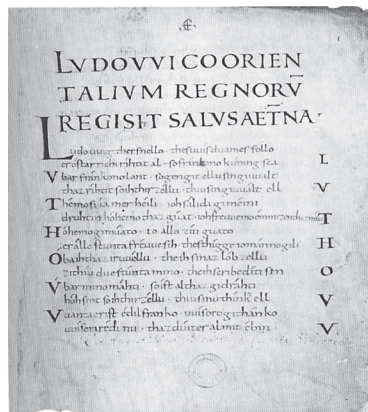 LVDOVVICO ORIEN
TALIVM REGNORV̄
REGI SIT SALVS AET̄NA·
Ludouuig ther snello · thes uuisduames follo
er ostarrichi rihtit al · so frankono kuning scal L
Vbar frankono lant · so gengit ellu sin giuualt
thaz rihtit so ih thir zellu · thiu sin giuualt ell V
Themo si iamer heili · ioh salida gimeini
druhtin hohe mo thaz guat · ioh freuue mo emmizen T
Hohe mo gimuato · io allo ziti guato
er allo stunta freuue sih · thes thigge io manno gilih H
Oba ih thaz iruuellu · theih sinaz lob zellu
zi thiu due stunta mino · theih scribe dati sin O
Vbar mino mahti · so ist al thaz gidrahti
hoh sint so ih thir zellu · thiu sinu think ell V
Vuanta er ist edil franko · uuisero githanko
uuisera redinu · thaz duit er al mit ebin V